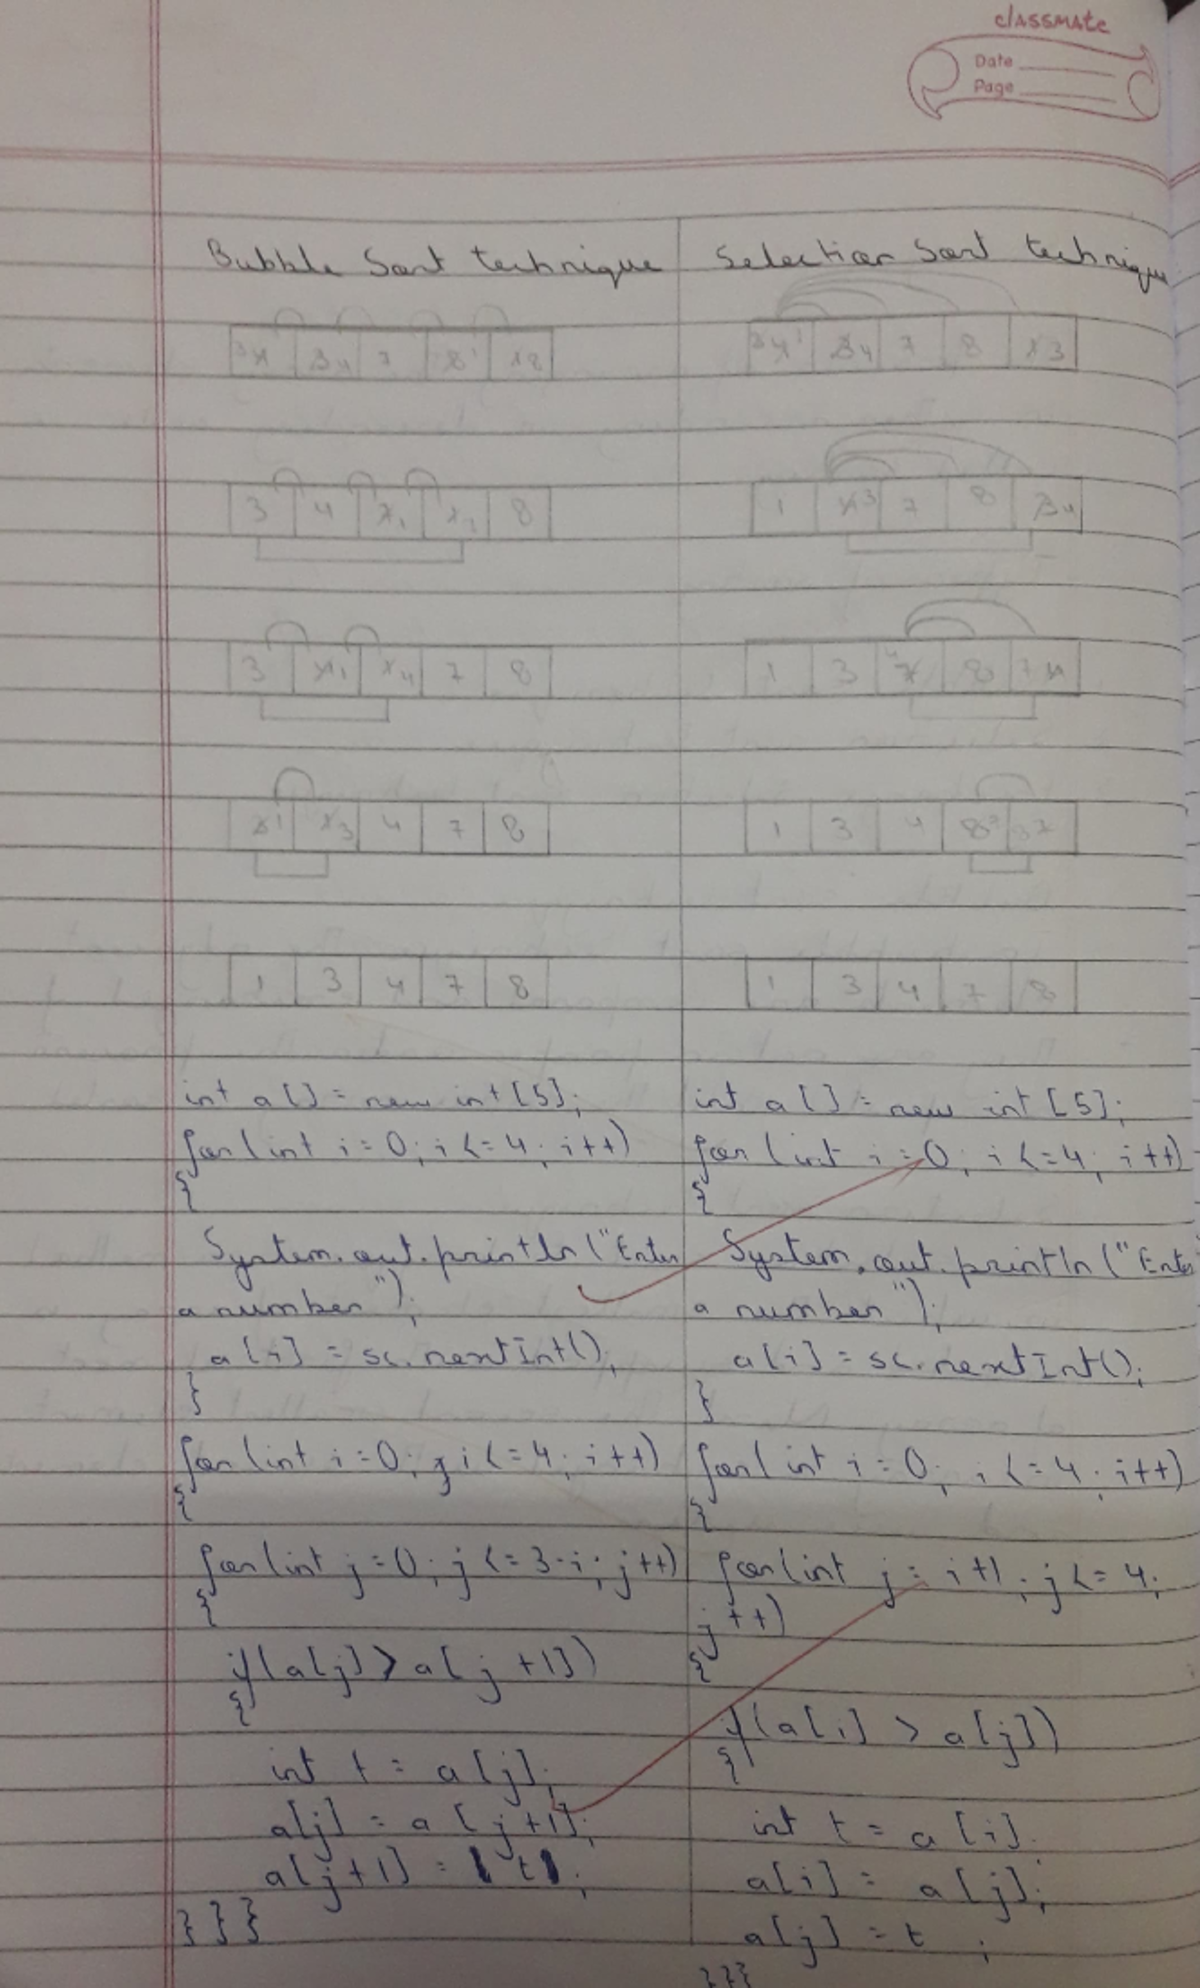 classmate
Date
Page
Bubble Sort technique
3 4 7 8
3 4 7 1 8
3 4 1 7 8
3 1 4 7 8
1 3 4 7 8
int a[] = new int[5];
for(int i=0; i<=4; i++)
{
System.out.println("Enter
a number");
a[i] = sc.nextInt();
}
for(int i=0; i<=4; i++)
{
for(int j=0; j<=3-i; j++)
{
if(a[j]>a[j+1])
{
int t = a[j];
a[j] = a[j+1];
a[j+1] = t;
}}}
Selection Sort technique
4 7 8 3
1 3 7 8 4
1 3 4 8 7
1 3 4 8 7
1 3 4 7 8
int a[] = new int[5];
for(int i=0; i<=4; i++)
{
System.out.println("Enter
a number");
a[i] = sc.nextInt();
}
for(int i=0; i<=4; i++)
{
for(int j=i+1; j<=4;
j++)
{
if(a[i] > a[j])
{
int t = a[i].
a[i] = a[j];
a[j] = t ;
}}}